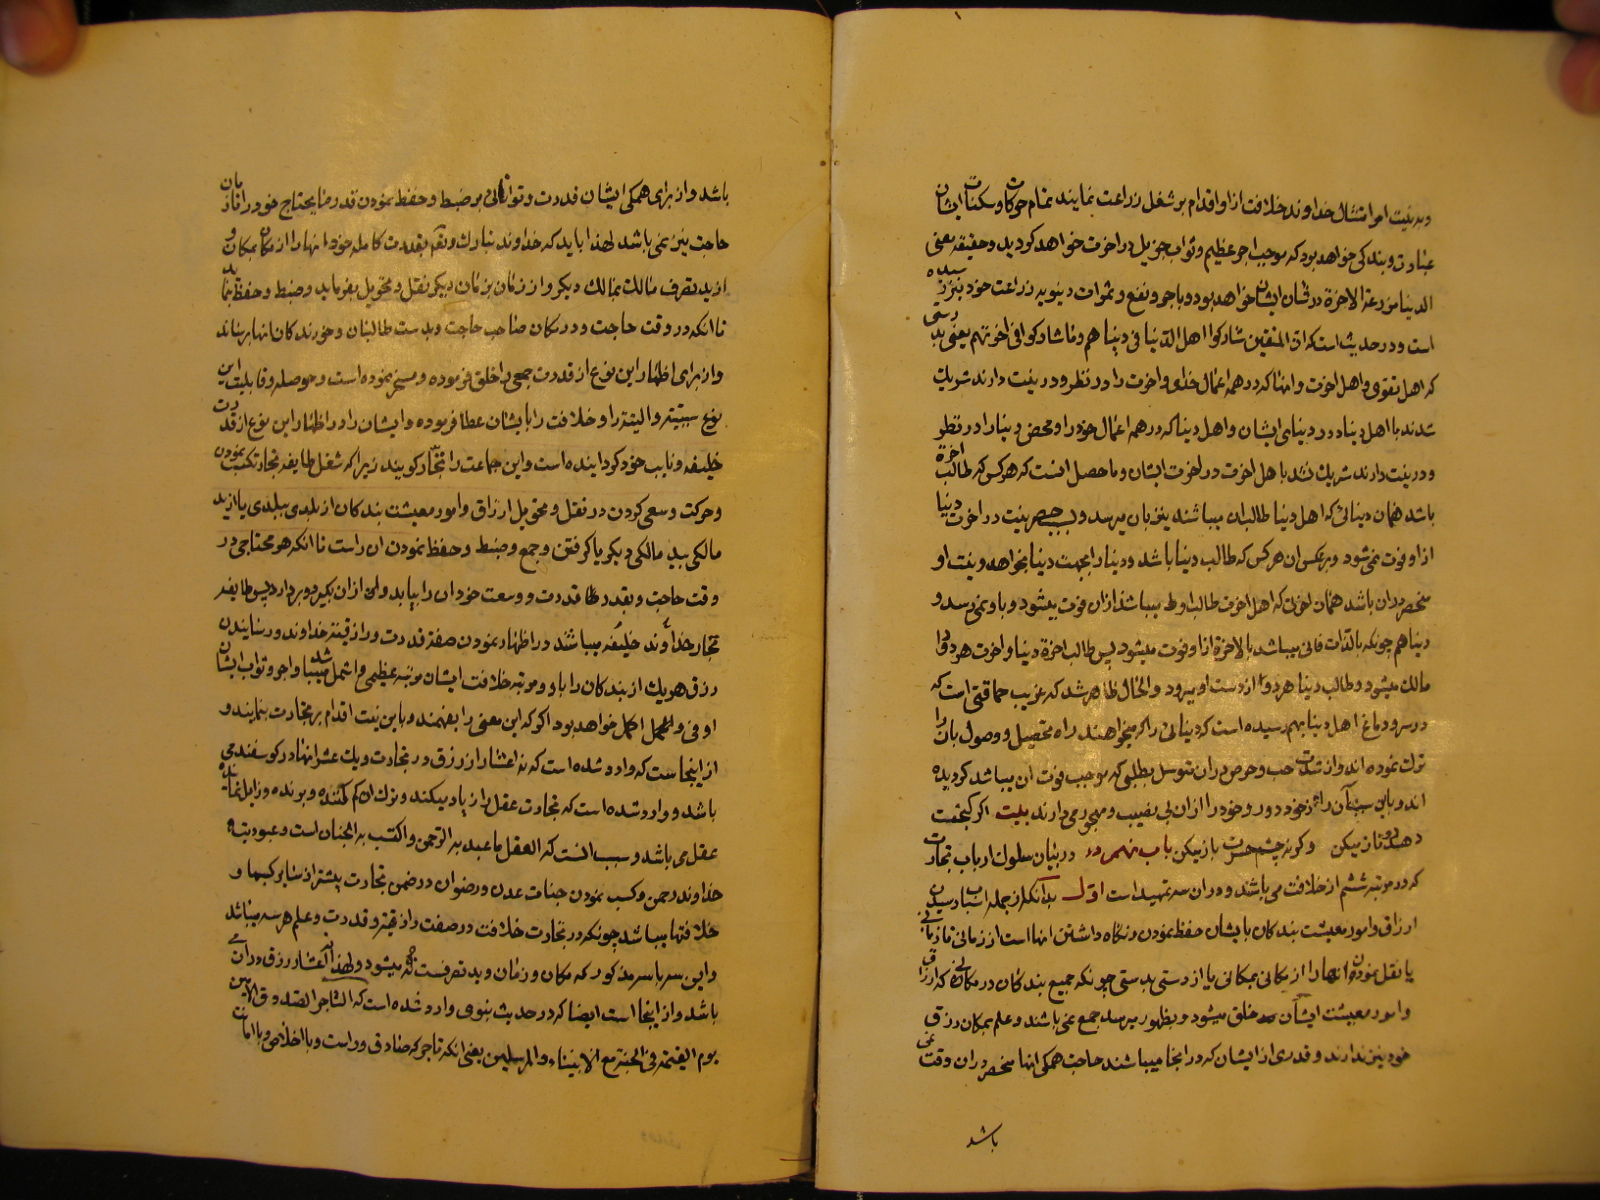 و به نیت امر امتثال خداوند خلافت از او اقدام بر شغل زراعت نمایند تمام حرکات و سکنات ایشان
عبادت و بندکی خواهد بود که موجب اجر عظیم و ثواب جزیل در اخرت خواهد کردید و حقیقه معنی
الدنیا مزرعة الاخرة در شان ایشان خواهد بود و باجر و نفع و ثمرات دنیویه زراعت خود نیز رسیده
است و در حدیث است که ان المتقین شارکوا اهل الدنیا فی دنیاهم و ما شارکوا فی اخرتهم یعنی بدرستی
که اهل تقوی و اهل اخرت و انها که در همه اعمال خدا و اخرت را در نظر و در نیت دارند شریک
شدند با اهل دنیا در دنیای ایشان و اهل دنیا که در همه اعمال خود را و محض دنیا را در نظر
و در نیت دارند شریک نشدند با اهل اخرت در اخرت ایشان و ماحصل انست که هر کس که طالب اخرة
باشد همان دنیائی که اهل دنیا طالب ان میباشند نیز بان میرسد و بسبب حصر نیت در اخرت دنیا
از او فوت نمی شود و بر عکس ان هر کس که طالب دنیا باشد و دنیا را بجهت دنیا بخواهد و نیت او
منحصر در ان باشد همان اخرتی که اهل اخرت طالب اوط میباشند از ان فوت میشود و باو نمی رسد و
دنیا هم چونکه بالذات فانی میباشد بالاخرة از او فوت میشود پس طالب اخرة دنیا و اخرت هر دو را
مالک میشود و طالب دنیا هر دو از دست او میرود و الحال ظاهر شد که غریب حماقتی است که
در سر و دماغ اهل دنیا بهم رسیده است که دنیائی را که میخواهند راه تحصیل و وصول بان را
ترک نموده اند و از شدت حب و حرص در ان متوسل بمطلبی که موجب فوت ان میباشد کردیده
اند و باین سبب آن را از خود دور و خود را از ان بی نصیب و مهجور می دارند بیت اکر کیخت
دهد و ناز میکن و کرنه چشم حسرت باز میکن باب نهم در بیان سلوک ارباب تجارت
که در مرتبه ششم از خلافت می باشند و در ان سه تمهید است اول بدانکه از جمله اسباب رسیدن
ارزاق و امور معیشت بندکان بایشان حفظ نمودن و نکاه داشتن انها است از زمانی تا زمانی
یا نقل نمودن انها را از مکانی بمکانی یا از دستی بدستی چونکه جمیع بندکان در مکانی که ارزاق
و امور معیشت ایشان خلق میشود و بظهور میرسد جمع نمی باشند و علم بمکان رزق
خود نیز ندارند و قدری از ایشان که در انجا میباشند حاجت همکی انها منحصر در ان وقت نمی
باشد
باشد و از برای همکی ایشان قدرت و توانائی بر ضبط و حفظ نمودن قدر ما یحتاج خود را تا زمان
حاجت نیز نمی باشد لهذا باید که خداوند تبارک و تعالی بقدرت کامله خود انها را از مکان بمکان و
از ید تصرف مالک بمالک دیکر و از زمان بزمان دیکر نقل و تحویل بفرماید و ضبط و حفظ نماید
تا انکه در وقت حاجت و در مکان صاحب حاجت و بدست طالبان و خورندکان انها برساند
و از برای اظهار این نوع از قدرت جمعی را خلق فرموده و مسخر نموده است و حوصله و قابلیت این
نوع سببیته و الیته را و خلافت را بایشان عطا فرموده و ایشان را در اظهار این نوع از قدرت
خلیفه و نایب خود کردانیده است و این جماعت را تجار کویند زیرا که شغل طایفه تجار تکسب نمودن
و حرکت و سعی کردن در نقل و تحویل ارزاق و امور معیشت بندکان از بلدی ببلدی یا از ید
مالکی بید مالکی دیکر یا کرفتن و جمع و ضبط و حفظ نمودن ان راست تا انکه هر محتاجی در
وقت حاجت و بقدر قدرت و وسعت خود ان را بیابد و از ان بکیرد و بردارد پس طایفه
تجار خداوند خلیفه میباشند در اظهار نمودن صفة قدرت و رازقیته خداوند و رسانیدن
رزق هر یک از بندکان را باو و مرتبه خلافت ایشان مرتبه عظیمی و اشمل میباشد و اجر و ثواب ایشان
اوفی و اکمل خواهد بود اکر که این معنی را بفهمند و باین نیت اقدام بر تجارت بنمایند و
از اینجاست که وارد شده است که نه اعشار از رزق در تجارت و یک عشر انها در کوسفند می
باشد و وارد شده است که تجارت عقل را زیاد میکند و ترک ان کم کننده و برنده و زایل نماینده
عقل می باشد و سبب انست که العقل ما عبد به الرحمن و اکتسب به الجنان است و عبودیته
خداوند رحمن و کسب نمودن جنات عدن و رضوان در ضمن تجارت پیشتر از سایر کسبها و
خلافتها میباشد چونکه در تجارت خلافت در صفت رازقیته و قدرت و علم هر سه میباشد
و این سر باسر مذکور که مکان و زمان و ید تصرفست جمع میشود و لهذا نه اعشار رزق در ان می
باشد و از اینجا است ایضا که در حدیث نبوی وارد شده است که التاجر الصدوق الامین
یوم القیمة فی الجنة مع الانبیاء و المرسلین یعنی انکه تاجر که صادق و راست و با اخلاص و با امانت